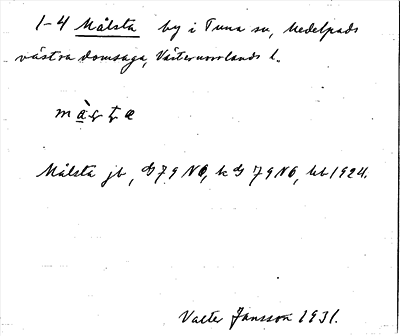 1-4 Målsta by i Tuna sn, Medelpads
västra domsaga, Västernorrlands l.
Målsta jb, G 79 NO, k G 79 NO, kb 1924.
Valter Jansson 1931.